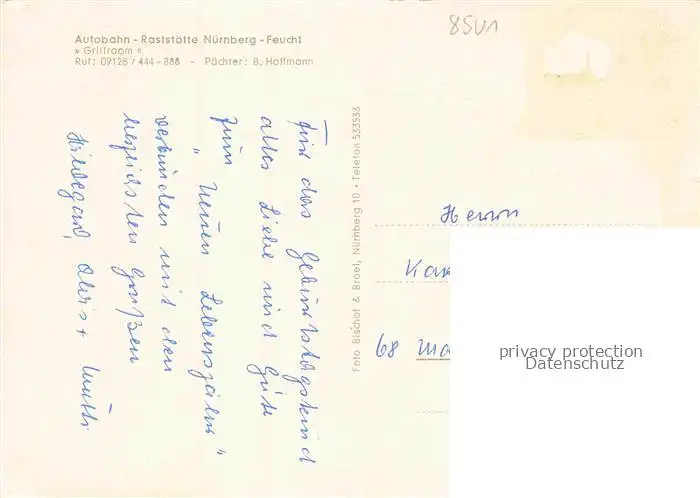 85U1
Autobahn - Raststätte Nürnberg - Feucht
» Grillroom «
Ruf: 09128 / 444-888 - Pächter: B. Hoffmann
Für das Geburtstagskind
alles Liebe und Gute
zum " neuen Lebensjahr "
verbunden mit den
herzlichsten Grüßen
Hildegard, Alois + Mutti
Foto Bischof & Broel, Nürnberg 10 • Telefon 533533
Herrn
Kar
68 Ma
privacy protection
Datenschutz